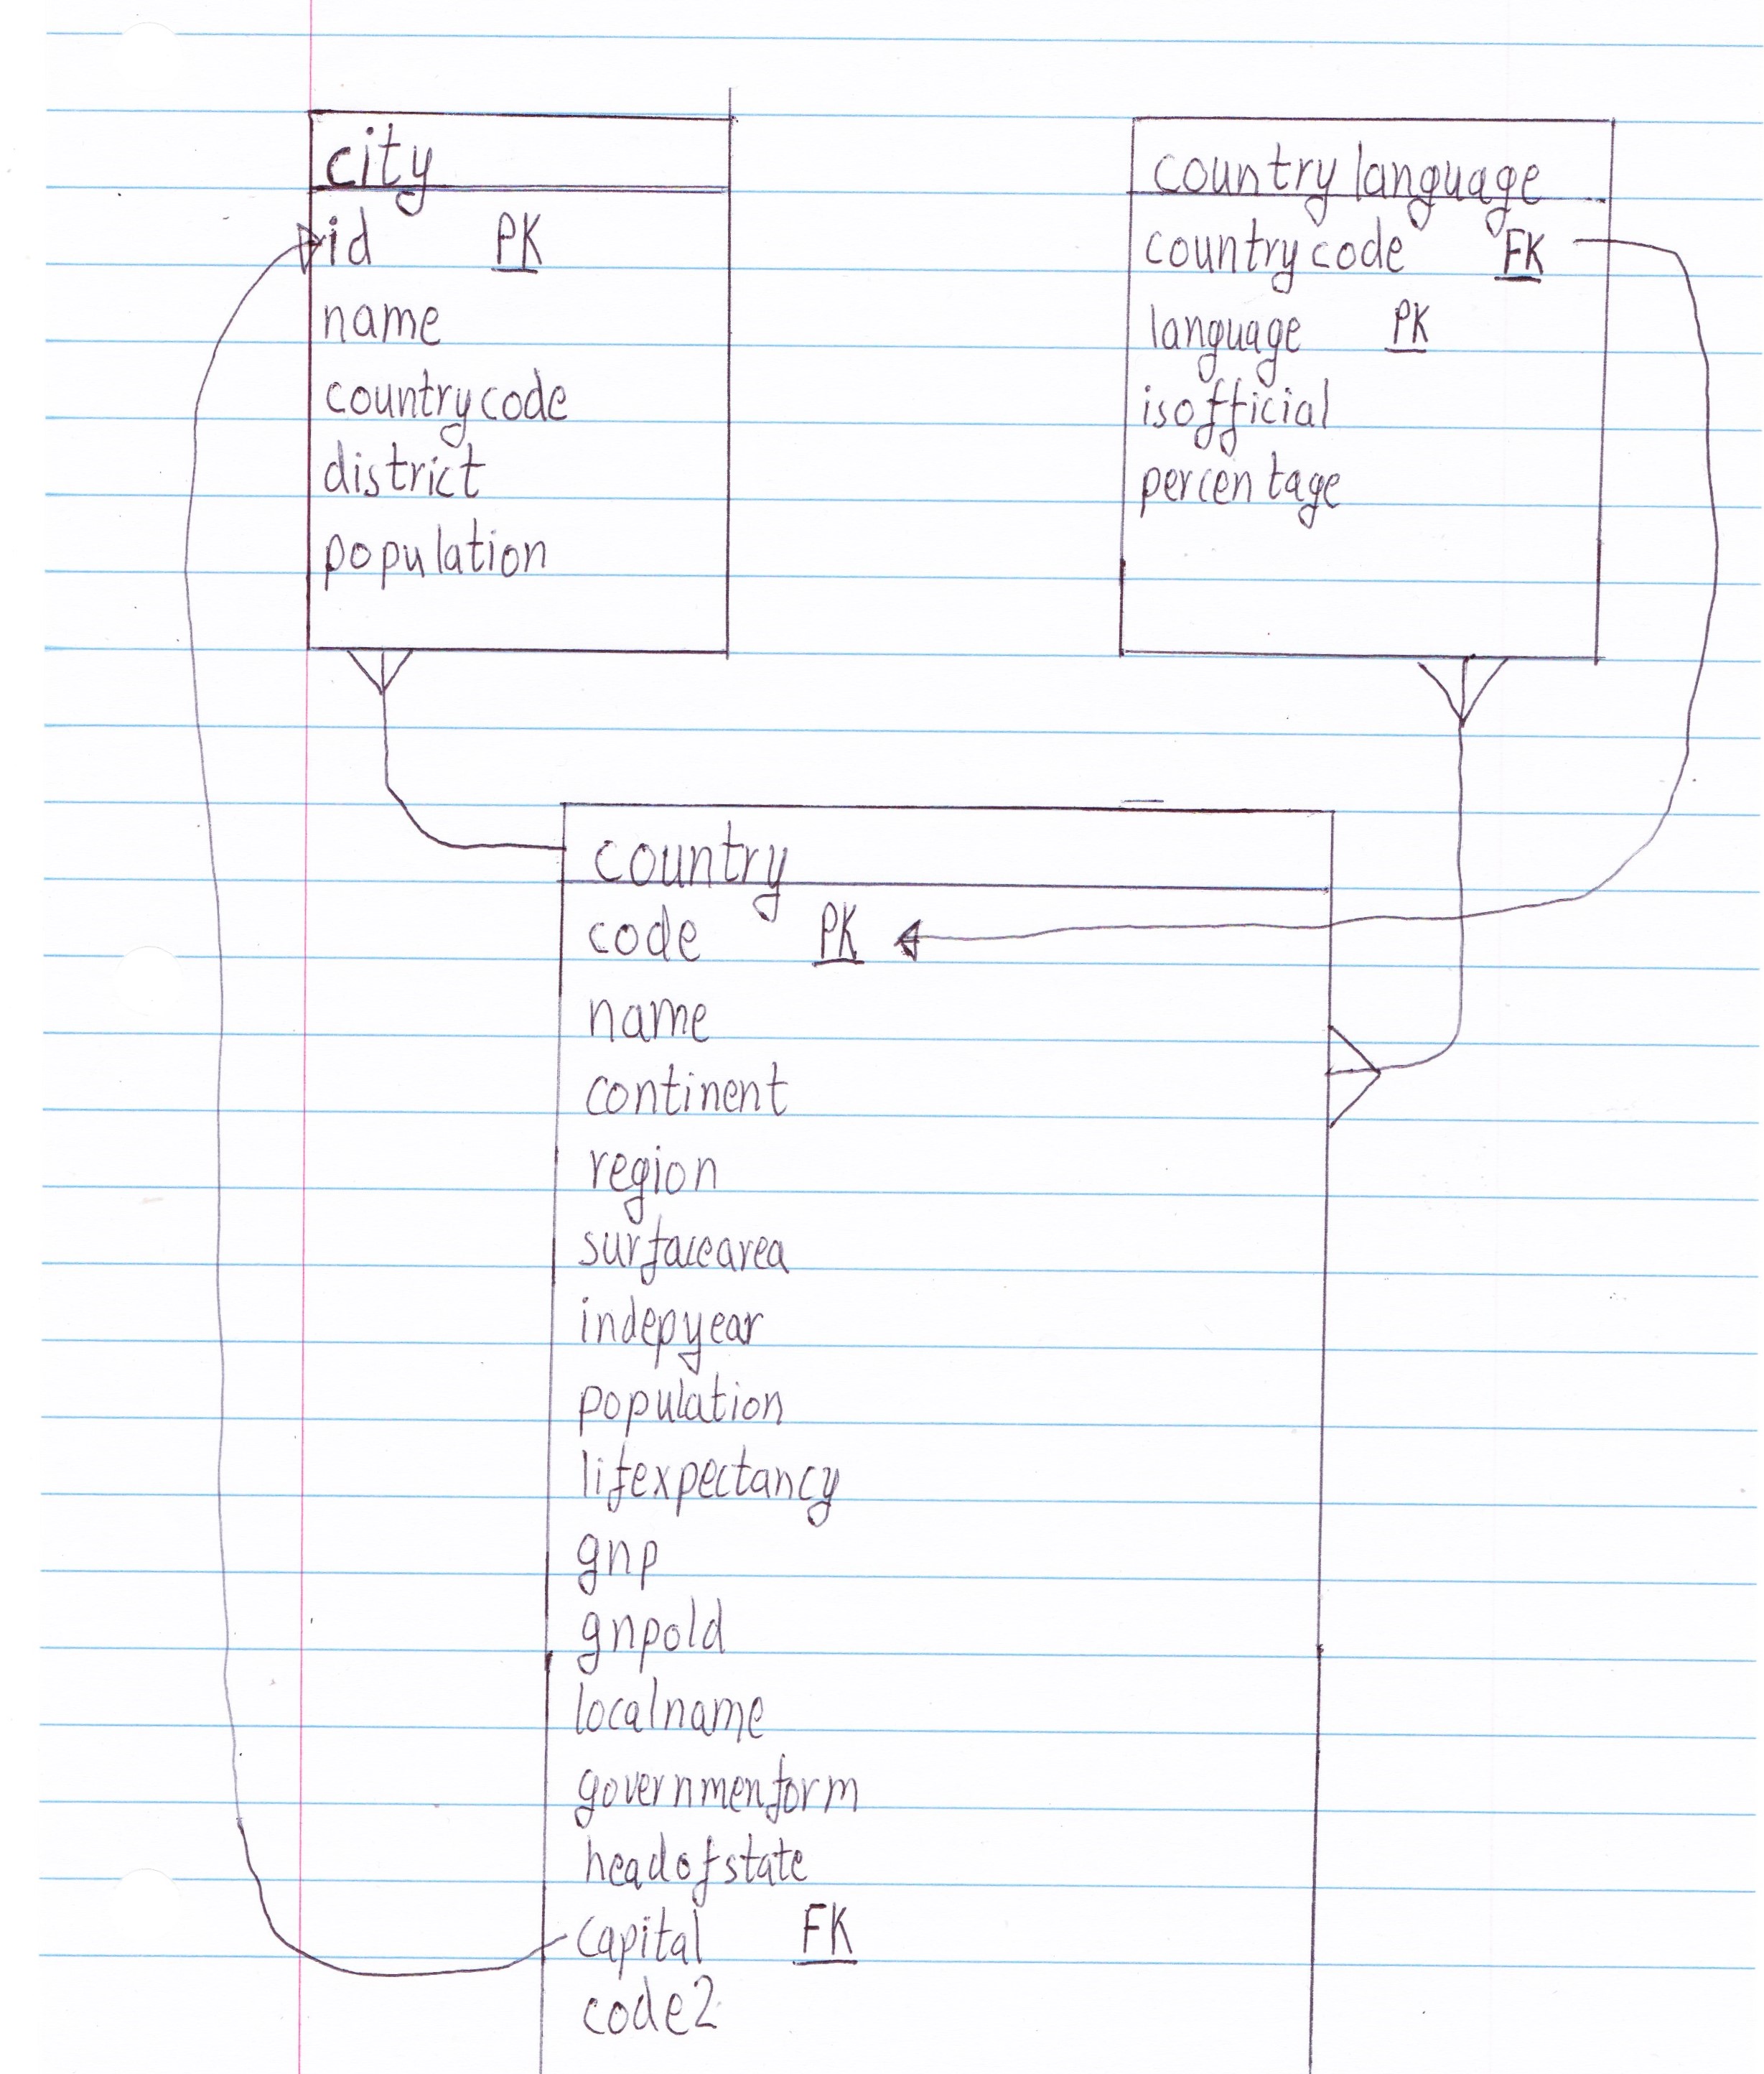 city
id PK
name
countrycode
district
population
countrylanguage
countrycode FK
language PK
isofficial
percentage
country
code PK
name
continent
region
surfacearea
indepyear
population
lifexpectancy
gnp
gnpold
localname
governmenform
headofstate
capital FK
code2